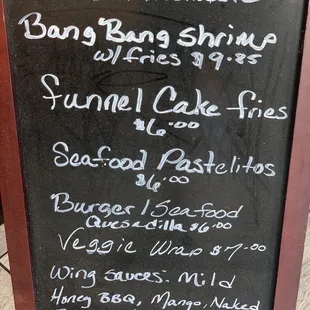 Bang Bang Shrimp
w/fries $9.85
Funnel Cake fries
$6.00
Seafood Pastelitos
$6.00
Burger/Seafood
Quesadilla $6.00
Veggie Wrap $7.00
Wing Sauces: Mild
Honey BBQ, Mango, Naked